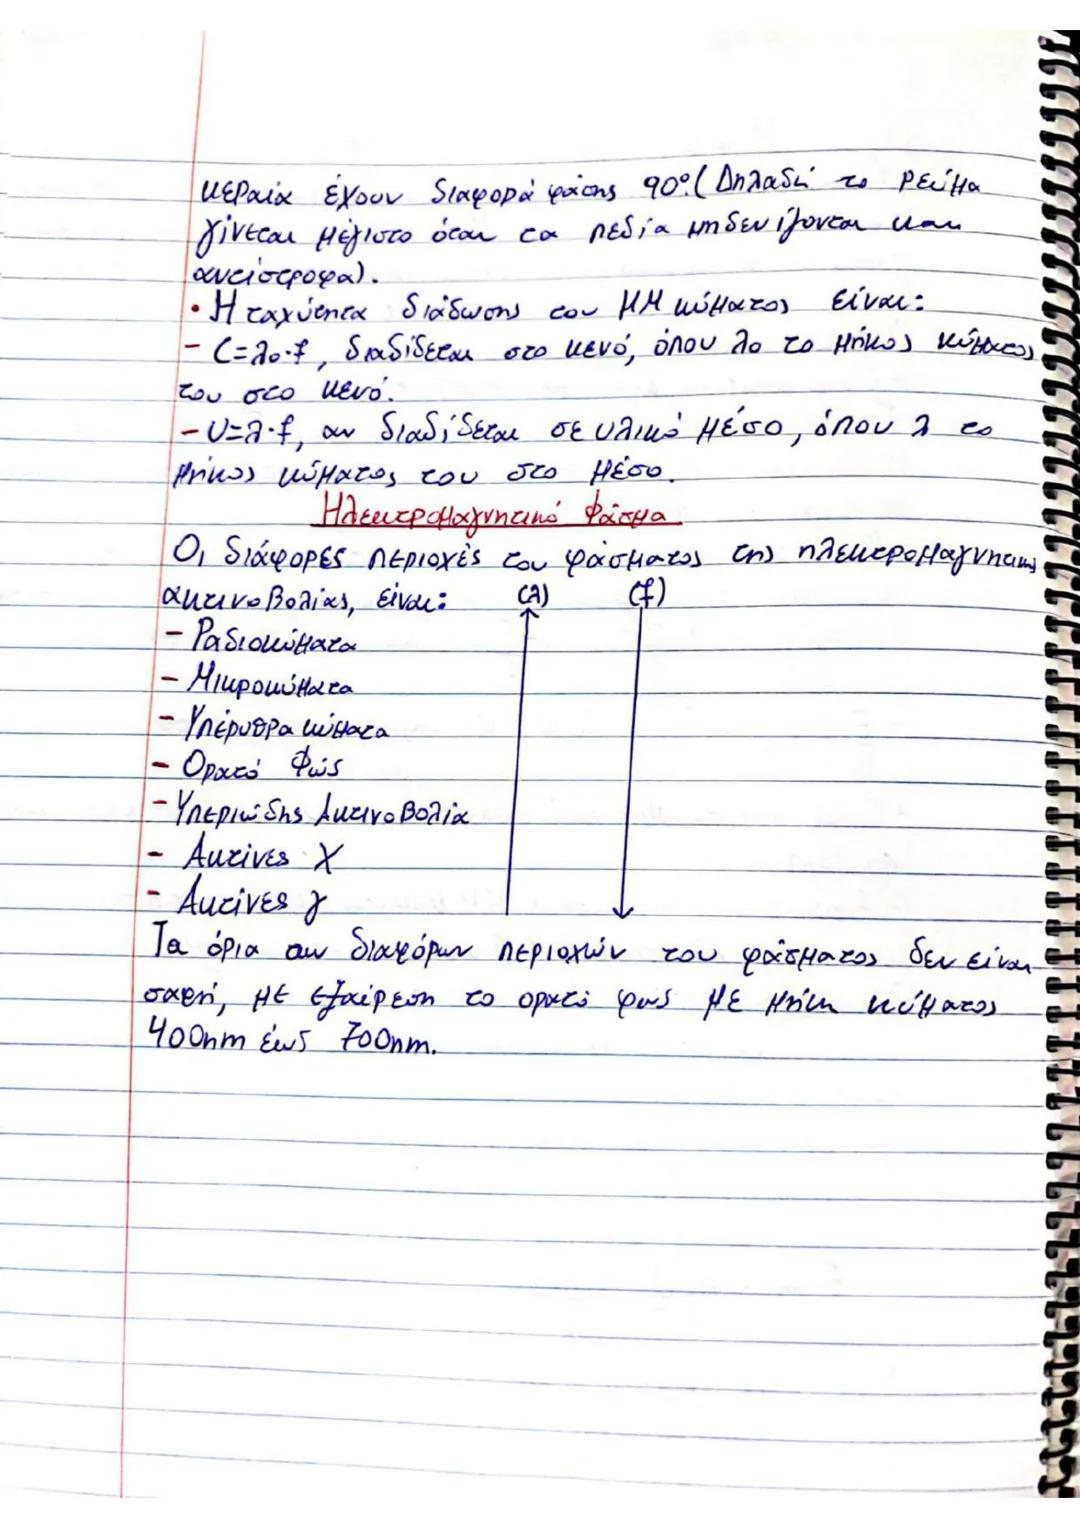 κεραία έχουν διαφορά φάσης 90° (Δηλαδή το ρεύμα
γίνεται μέγιστο όταν τα πεδία μηδενίζονται και
αντίστροφα).
• Η ταχύτητα διάδωσης του ΗΜ κύματος είναι:
- C=λο·f, διαδίδεται στο κενό, όπου λο το μήκος κύματος
του στο κενό.
- υ=λ·f, αν διαδίδεται σε υλικό μέσο, όπου λ το
μήκος κύματος του στο μέσο.
Ηλεκτρομαγνητικό Φάσμα
Οι διάφορες περιοχές του φάσματος της ηλεκτρομαγνητικής
ακτινοβολίας, είναι: (λ) (f)
- Ραδιοκύματα
- Μικροκύματα
- Υπέρυθρα κύματα
- Ορατό Φώς
- Υπεριώδης Ακτινοβολία
- Ακτίνες Χ
- Ακτίνες γ
Τα όρια των διαφόρων περιοχών του φάσματος δεν είναι
σαφή, με εξαίρεση το ορατό φως με μήκη κύματος
400nm έως 700nm.